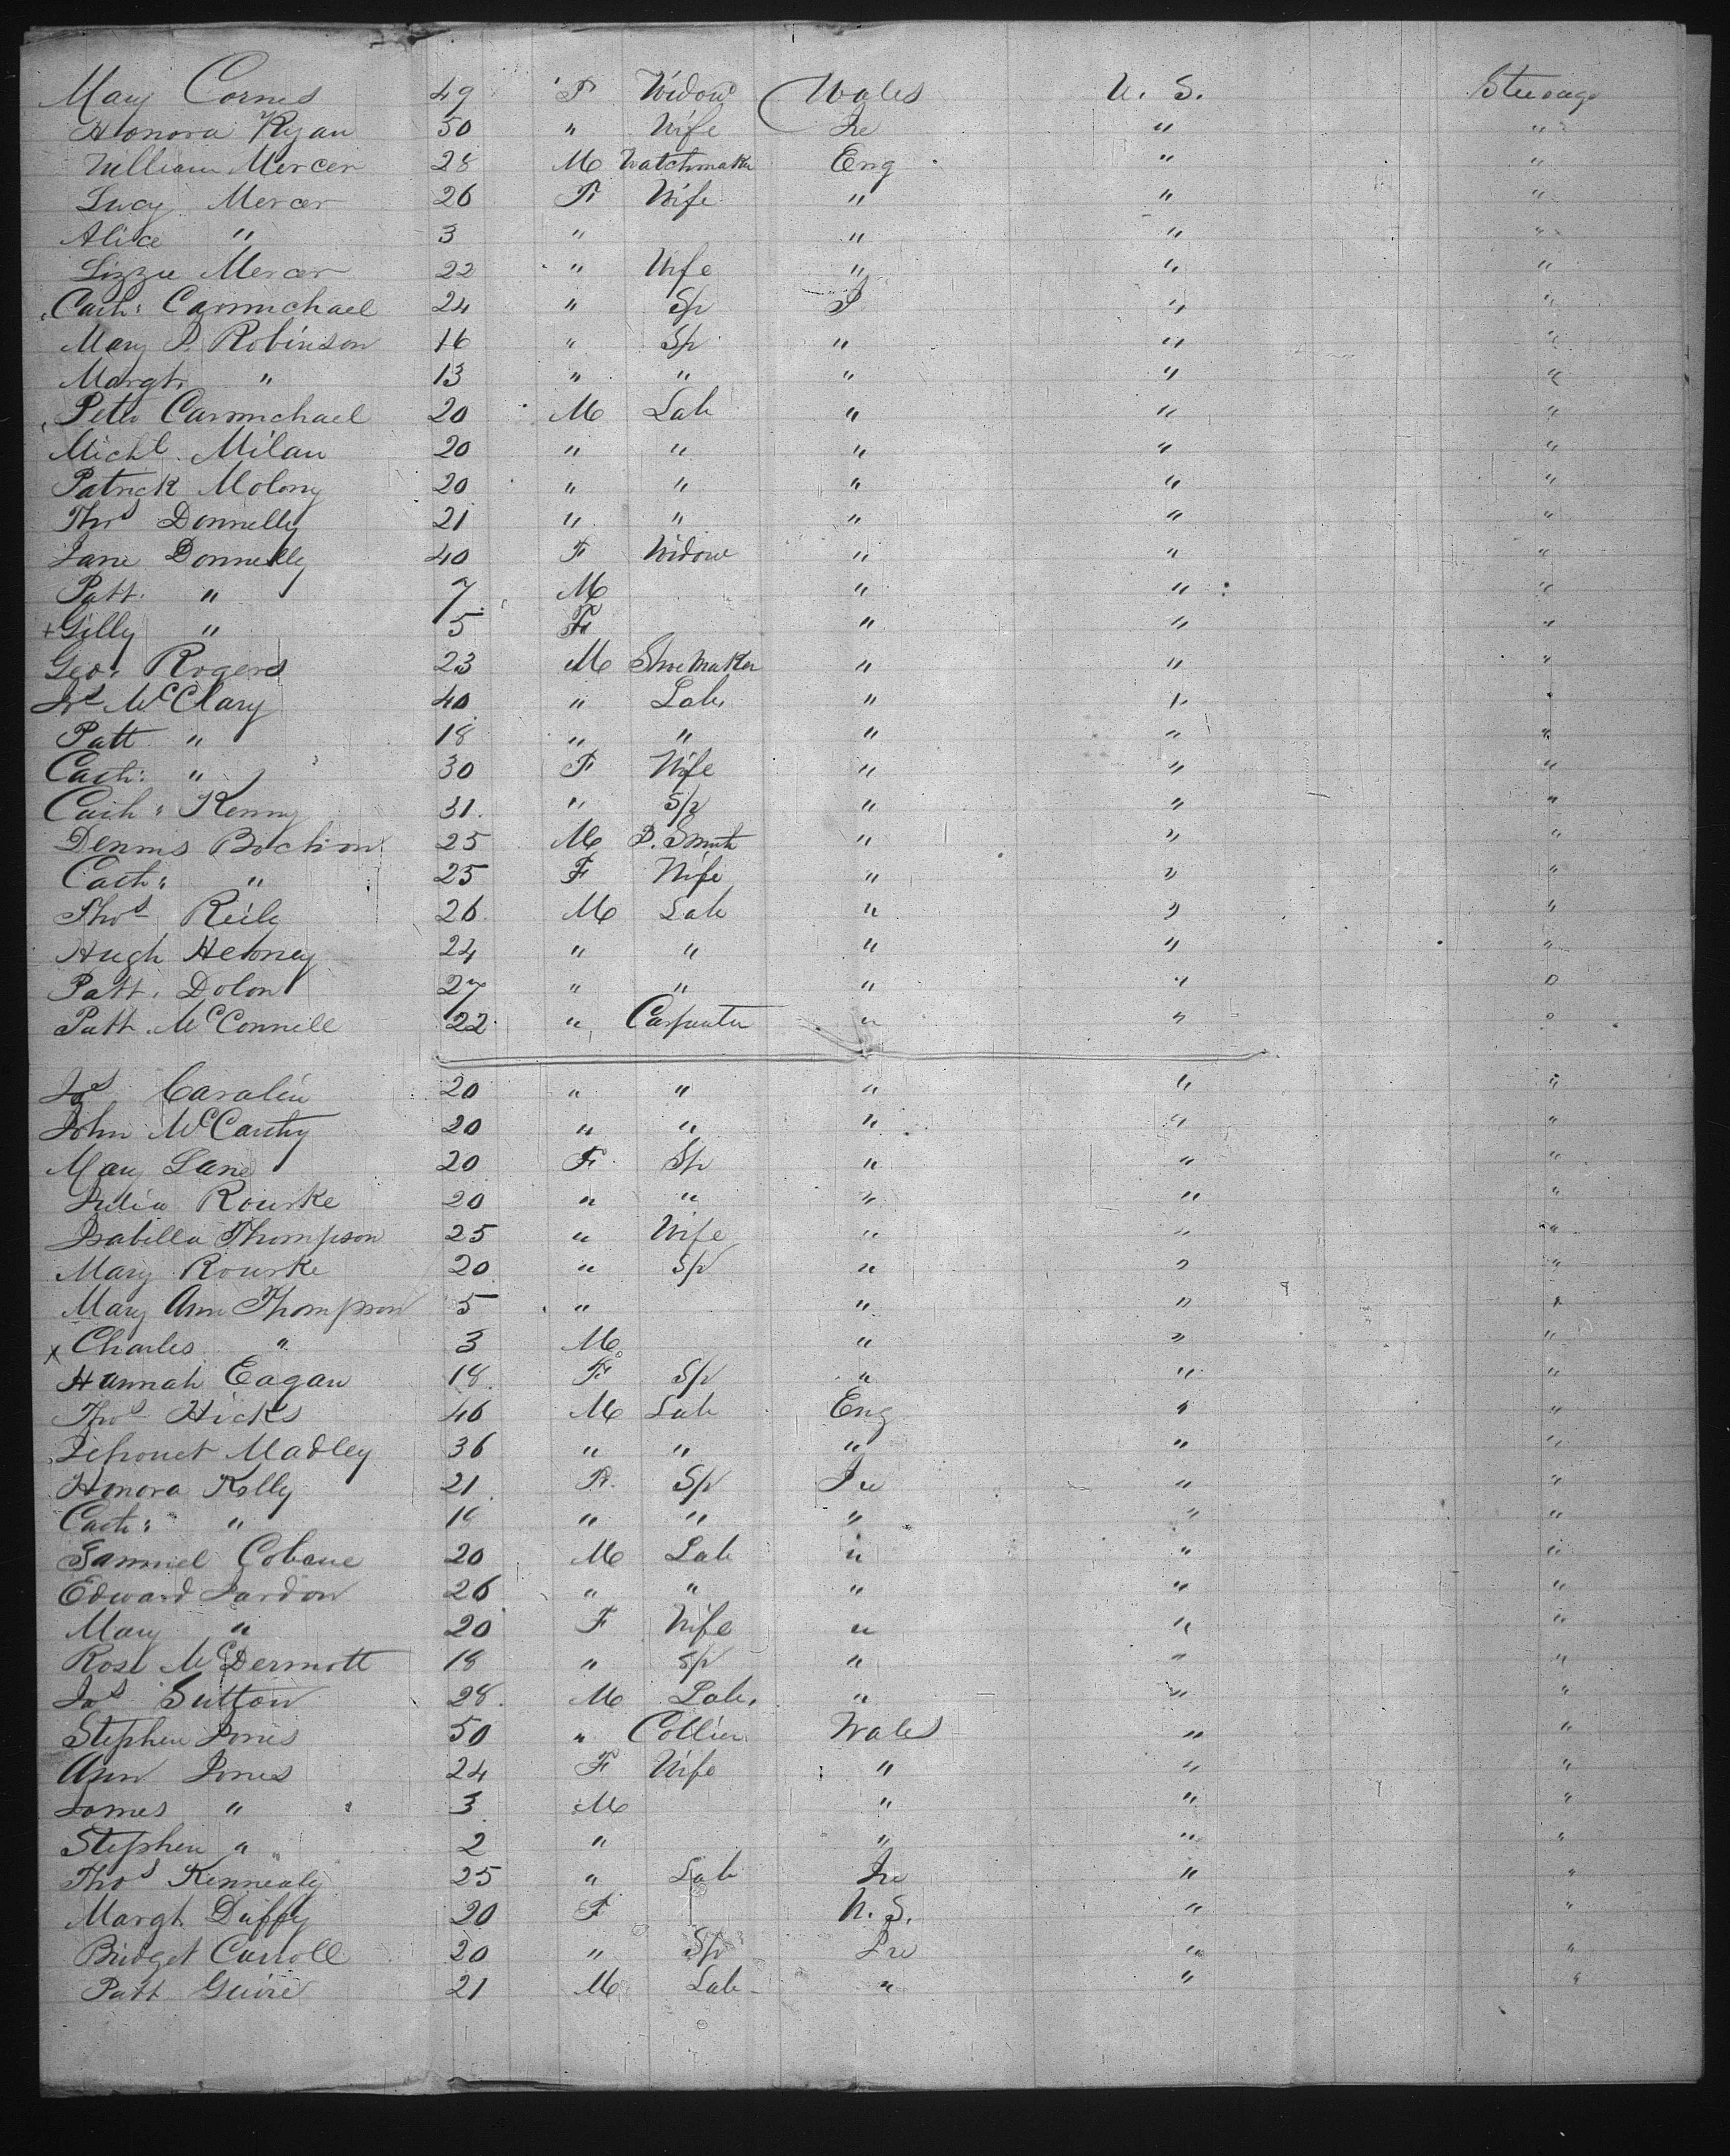 Mary Cornes 49 F Widow Wales U. S. Steerage
Honora Ryan 50 " Wife Ire " "
William Mercer 28 M Watchmaker Eng " "
Lucy Mercer 26 F Wife " " "
Alice " 3 " " " "
Lizzie Mercer 22 " Wife " " "
Cath: Carmichael 24 " Sp I " "
Mary P. Robinson 16 " Sp " " "
Margt " 13 " " " " "
Peter Carmichael 20 M Lab " " "
Michl. Milan 20 " " " " "
Patrick Molony 20 " " " " "
Thos Donnelly 21 " " " " "
Jane Donnelly 40 F Widow " " "
Patt. " 7 M " " "
+ Gilly " 5 F " " "
Geo: Rogers 23 M Shoemaker " " "
Js McClary 40 " Lab. " " "
Patt " 18 " " " " "
Cath: " 30 F Wife " " "
Cath: Kenny 31. " Sp " " "
Dennis 25 M B. Smith " " "
Cath: " 25 F Wife " " "
Thos Reily 26 M Lab " " "
Hugh 24 " " " " "
Patt. Dolon 27 " " " " "
Patt. McConnell 22 " Carpenter " " "
Jas Caralin 20 " " " " "
John McCarthy 20 " " " " "
Mary Lane 20 F Sp " " "
Julia Rourke 20 " " " " "
Isabella Thompson 25 " Wife " " "
Mary Rourke 20 " Sp " " "
Mary Ann Thompson 5 " " " "
x Charles " 3 M " " "
Hannah Eagan 18 F Sp " " "
Thos Hicks 46 M Lab Eng " "
Madley 36 " " " " "
Honora Kelly 21. F. Sp Ire " "
Cath: " 18 " " " " "
Samuel Cobane 20 M Lab " " "
Edward Jardon 26 " " " " "
Mary " 20 F Wife " " "
Rose McDermott 18 " Sp " " "
Jas Sutton 28. M Lab. " " "
Stephen Jones 50 " Collier Wales " "
Ann Jones 24 F Wife " " "
James " 3 M " " "
Stephen " 2 " " " "
Thos Kennealy 25 " Lab Ire " "
Margt. Duffy 20 F U. S. " "
Bridget Carroll 20 " Sp Ire " "
Patt 21 M Lab " " "